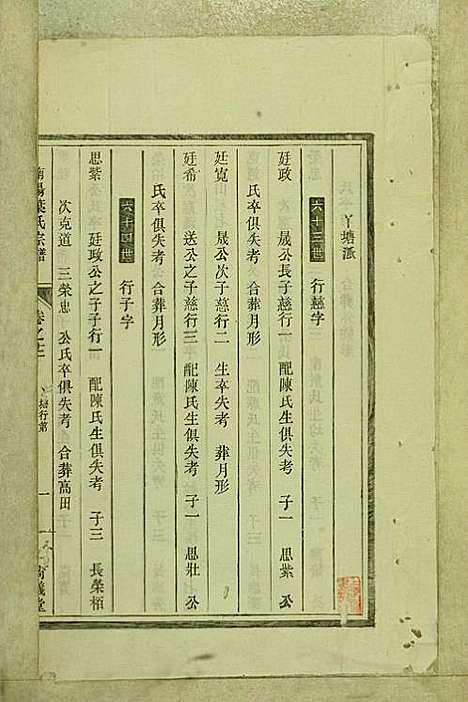 丫塘派
六十三世 行慈字
廷政 晟公長子慈行一 配陳氏生俱失考 子一 思紫 公
氏卒俱失考 合葬月形
廷寬 晟公次子慈行二 生卒失考 葬月形
廷希 送公之子慈行三 配陳氏生俱失考 子一 思壯 公
氏卒俱失考 合葬月形
六十四世 行子字
思紫 廷政公之子子行一 配陳氏生俱失考 子三 長榮栢
次克道 三榮忠 公氏卒俱失考 合葬高田
南陽葉氏宗譜 卷之 塘行第 一 義堂